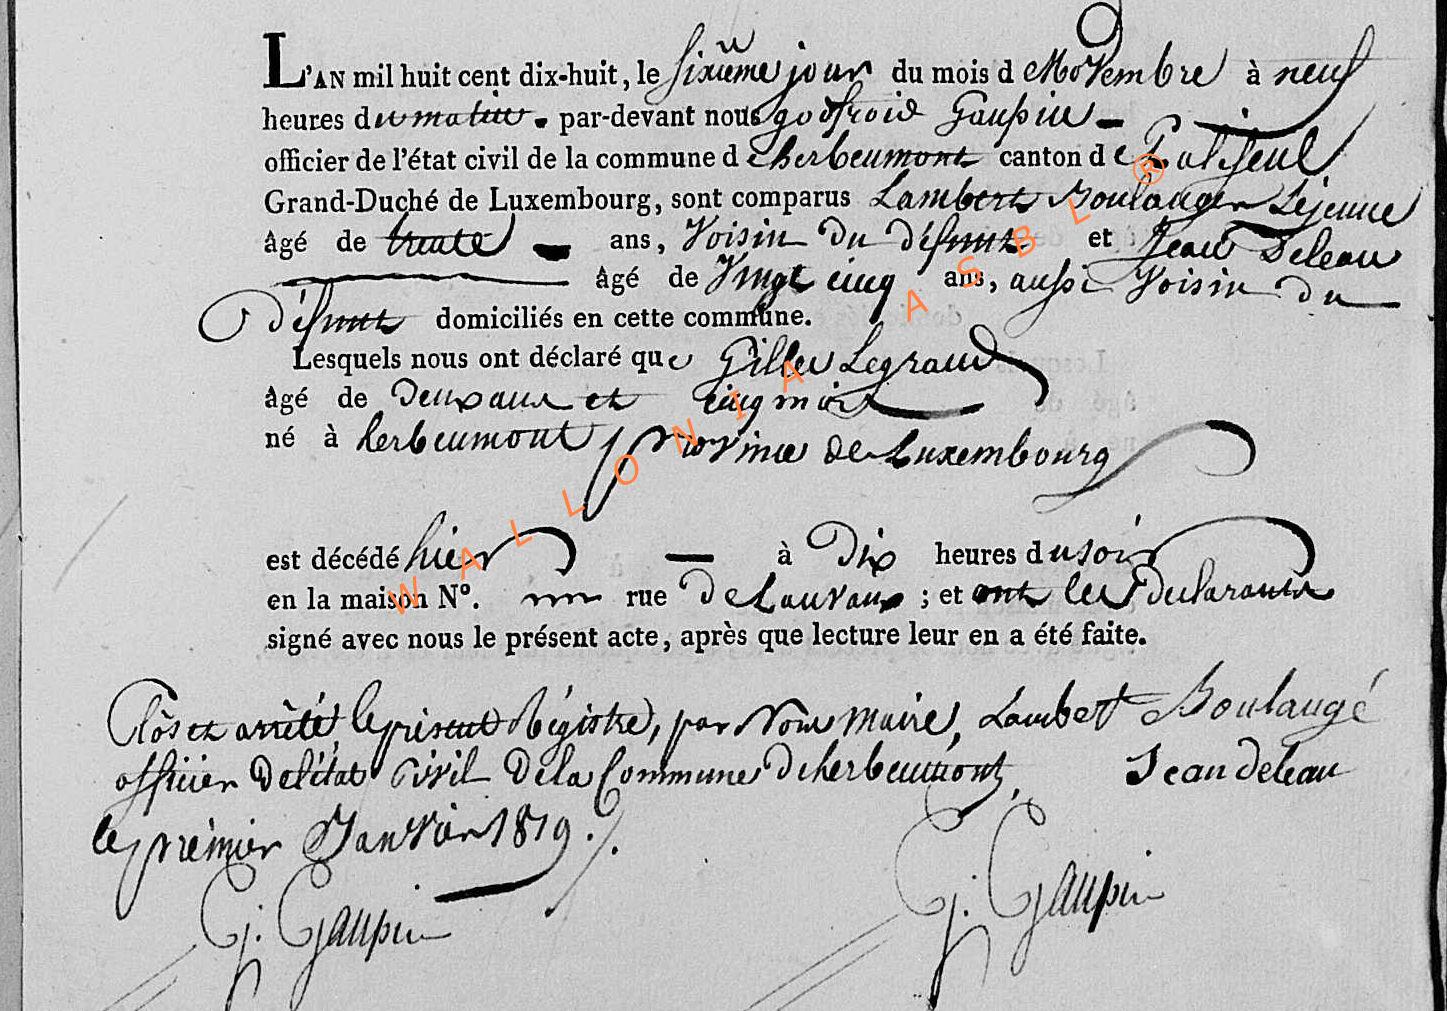 L'AN mil huit cent dix-huit, le sixième jour du mois de Novembre à neuf
heures du matin. par-devant nous godfroid Gaupin
officier de l'état civil de la commune d'herbeumont canton de Paliseul
Grand-Duché de Luxembourg, sont comparus Lambert Boulanger Lejeune
âgé de trente ans, Voisin du défunt et Jean Deleau
âgé de Vingt cinq ans, aussi Voisin du
défunt domiciliés en cette commune.
Lesquels nous ont déclaré que Gilles Legrand
âgé de Deux ans et cinq mois
né à herbeumont province de Luxembourg
est décédé hier à Dix heures du soir
en la maison Nº. rue De Lauvaux ; et ont les Déclarants
signé avec nous le présent acte, après que lecture leur en a été faite.
Clôs et arrêté le présent Régistre, par Nous maire, Lambert Boulangé
officier De l'état Civil De la Commune d'herbeumont, Jean deleau
le premier Janvier 1819.
G. Gaupin G. Gaupin
WALLONIA ASBL ®